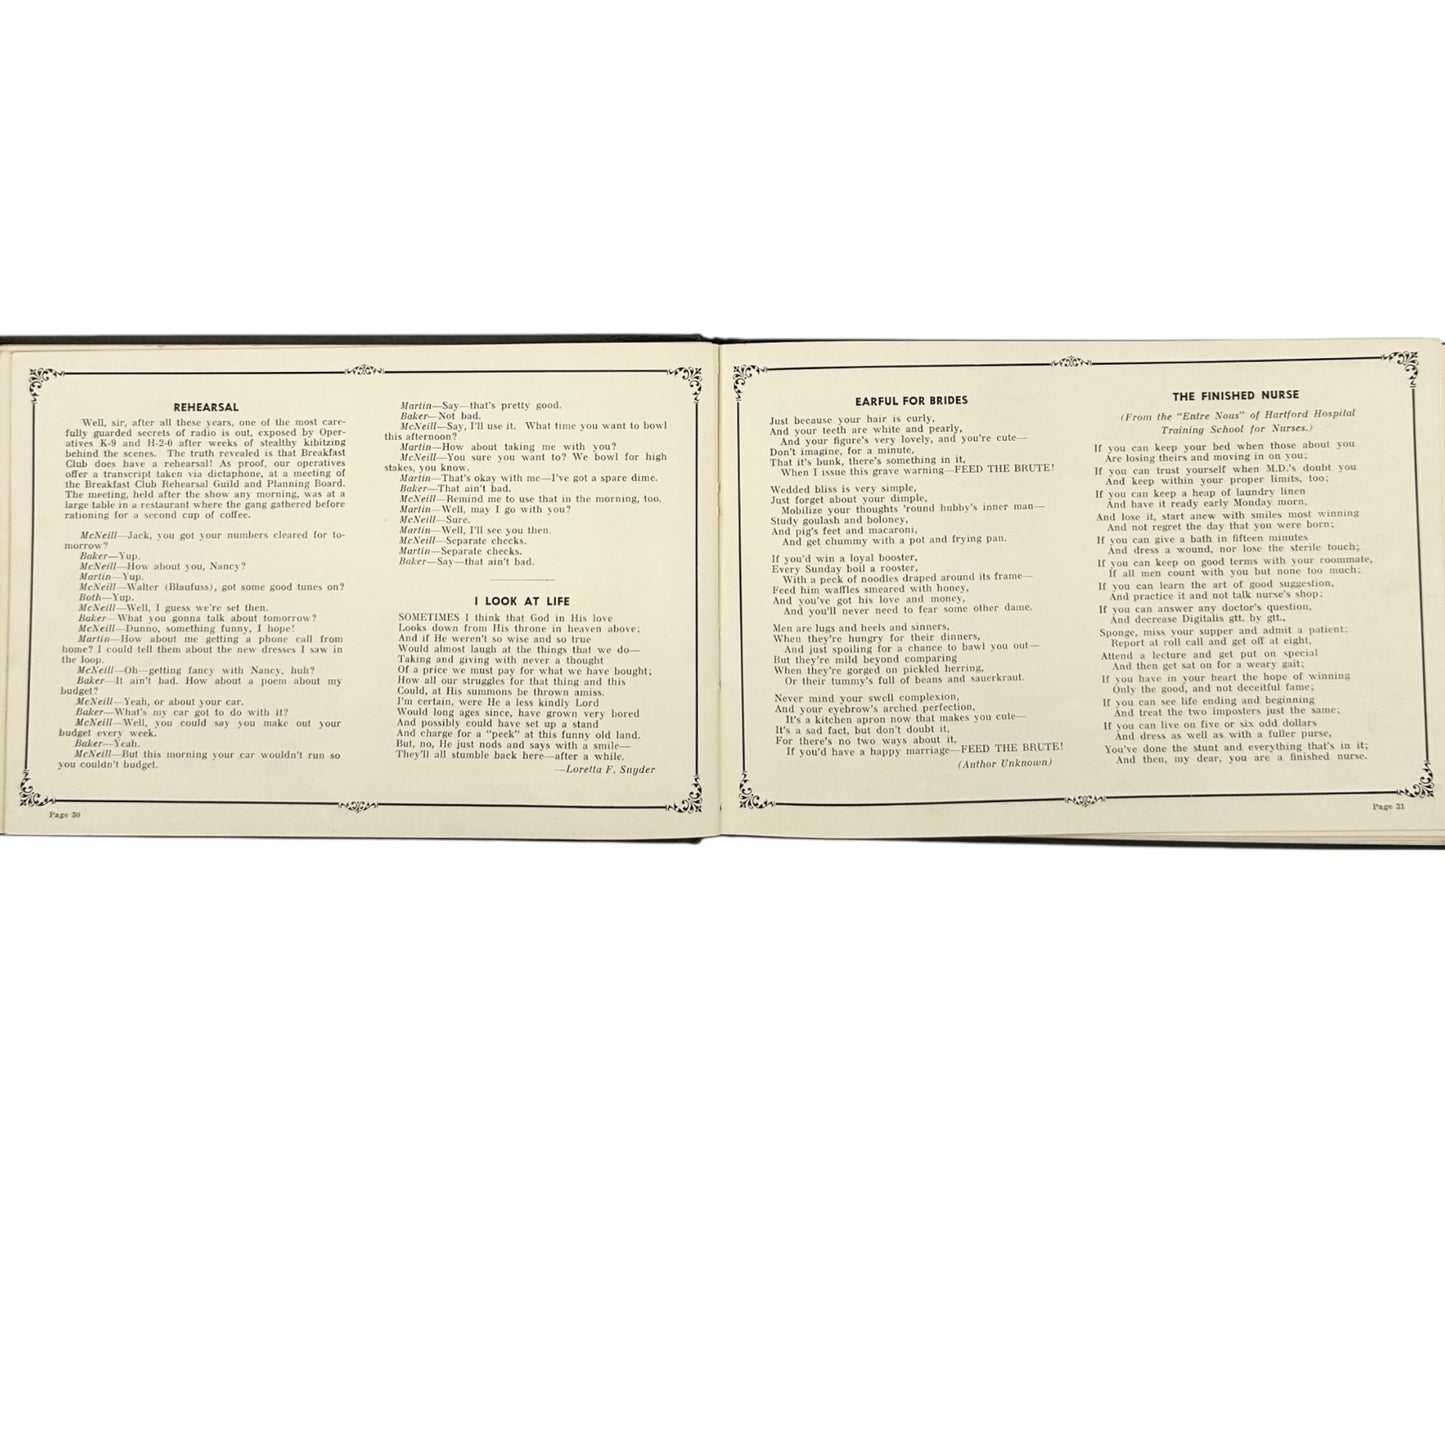 REHEARSAL
Well, sir, after all these years, one of the most care-
fully guarded secrets of radio is out, exposed by Oper-
atives K-9 and H-2-0 after weeks of stealthy kibitzing
behind the scenes. The truth revealed is that Breakfast
Club does have a rehearsal! As proof, our operatives
offer a transcript taken via dictaphone, at a meeting of
the Breakfast Club Rehearsal Guild and Planning Board.
The meeting, held after the show any morning, was at a
large table in a restaurant where the gang gathered before
rationing for a second cup of coffee.
McNeill—Jack, you got your numbers cleared for to-
morrow?
Baker—Yup.
McNeill—How about you, Nancy?
Martin—Yup.
McNeill—Walter (Blaufuss), got some good tunes on?
Both—Yup.
McNeill—Well, I guess we're set then.
Baker—What you gonna talk about tomorrow?
McNeill—Dunno, something funny, I hope!
Martin—How about me getting a phone call from
home? I could tell them about the new dresses I saw in
the loop.
McNeill—Oh—getting fancy with Nancy, huh?
Baker—It ain't bad. How about a poem about my
budget?
McNeill—Yeah, or about your car.
Baker—What's my car got to do with it?
McNeill—Well, you could say you make out your
budget every week.
Baker—Yeah.
McNeill—But this morning your car wouldn't run so
you couldn't budget.
Martin—Say—that's pretty good.
Baker—Not bad.
McNeill—Say, I'll use it. What time you want to bowl
this afternoon?
Martin—How about taking me with you?
McNeill—You sure you want to? We bowl for high
stakes, you know.
Martin—That's okay with me—I've got a spare dime.
Baker—That ain't bad.
McNeill—Remind me to use that in the morning, too.
Martin—Well, may I go with you?
McNeill—Sure.
Martin—Well, I'll see you then.
McNeill—Separate checks.
Martin—Separate checks.
Baker—Say—that ain't bad.
I LOOK AT LIFE
SOMETIMES I think that God in His love
Looks down from His throne in heaven above;
And if He weren't so wise and so true
Would almost laugh at the things that we do—
Taking and giving with never a thought
Of a price we must pay for what we have bought;
How all our struggles for that thing and this
Could, at His summons be thrown amiss.
I'm certain, were He a less kindly Lord
Would long ages since, have grown very bored
And possibly could have set up a stand
And charge for a "peek" at this funny old land.
But, no, He just nods and says with a smile—
They'll all stumble back here—after a while.
—Loretta F. Snyder
Page 30
EARFUL FOR BRIDES
Just because your hair is curly,
And your teeth are white and pearly,
And your figure's very lovely, and you're cute—
Don't imagine, for a minute,
That it's bunk, there's something in it,
When I issue this grave warning—FEED THE BRUTE!
Wedded bliss is very simple,
Just forget about your dimple,
Mobilize your thoughts 'round hubby's inner man—
Study goulash and boloney,
And pig's feet and macaroni,
And get chummy with a pot and frying pan.
If you'd win a loyal booster,
Every Sunday boil a rooster,
With a peck of noodles draped around its frame—
Feed him waffles smeared with honey,
And you've got his love and money,
And you'll never need to fear some other dame.
Men are lugs and heels and sinners,
When they're hungry for their dinners,
And just spoiling for a chance to bawl you out—
But they're mild beyond comparing
When they're gorged on pickled herring,
Or their tummy's full of beans and sauerkraut.
Never mind your swell complexion,
And your eyebrow's arched perfection,
It's a kitchen apron now that makes you cute—
It's a sad fact, but don't doubt it,
For there's no two ways about it,
If you'd have a happy marriage—FEED THE BRUTE!
(Author Unknown)
THE FINISHED NURSE
(From the "Entre Nous" of Hartford Hospital
Training School for Nurses.)
If you can keep your bed when those about you
Are losing theirs and moving in on you;
If you can trust yourself when M.D.'s doubt you
And keep within your proper limits, too;
If you can keep a heap of laundry linen
And have it ready early Monday morn,
And lose it, start anew with smiles most winning
And not regret the day that you were born;
If you can give a bath in fifteen minutes
And dress a wound, nor lose the sterile touch;
If you can keep on good terms with your roommate,
If all men count with you but none too much;
If you can learn the art of good suggestion,
And practice it and not talk nurse's shop;
If you can answer any doctor's question,
And decrease Digitalis gtt. by gtt.,
Sponge, miss your supper and admit a patient;
Report at roll call and get off at eight,
Attend a lecture and get put on special
And then get sat on for a weary gait;
If you have in your heart the hope of winning
Only the good, and not deceitful fame;
If you can see life ending and beginning
And treat the two imposters just the same;
If you can live on five or six odd dollars
And dress as well as with a fuller purse,
You've done the stunt and everything that's in it;
And then, my dear, you are a finished nurse.
Page 31